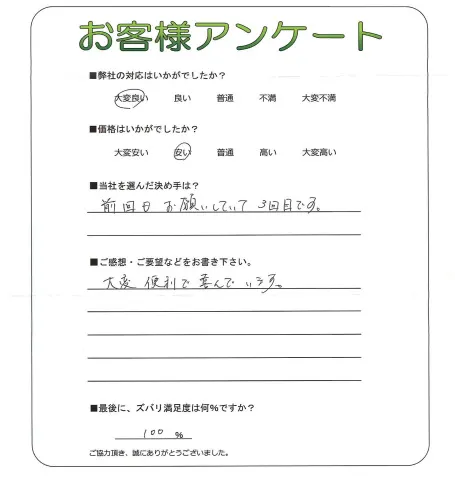 お客様アンケート
■弊社の対応はいかがでしたか？
大変良い 良い 普通 不満 大変不満
■価格はいかがでしたか？
大変安い 安い 普通 高い 大変高い
■当社を選んだ決め手は？
前回もお願いしていて3回目です。
■ご感想・ご要望などをお書き下さい。
大変便利で喜んでいます。
■最後に、ズバリ満足度は何％ですか？
100 %
ご協力頂き、誠にありがとうございました。